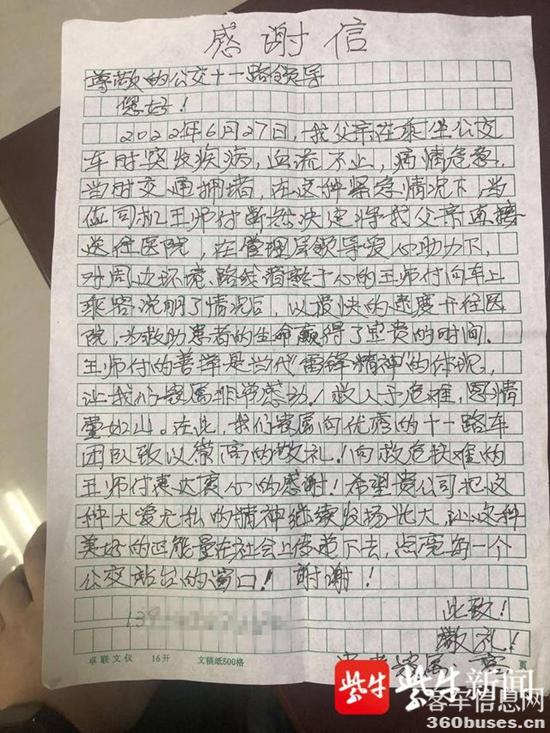 感谢信
尊敬的公交十一路领导
您好!
2022年6月27日,我父亲在乘坐公交
车时突发疾病,血流不止,病情危急,
当时交通拥堵,在这种紧急情况下,当
位司机王师付断然决定将我父亲直接
送往医院,在管理层领导爱心助力下,
对周边环境、路线者熟于心的王师付向车上
乘客说明了情况后,以最快的速度开往医
院,为救助患者的生命赢得了宝贵的时间.
王师付的善举是当代雷锋精神的体现,
让我们家属非常感动.救人于危难,恩情
重如山。在此,我们家属向优秀的十一路车
团队致以崇高的敬礼!向救危扶难的
王师付表达衷心的感谢!希望贵公司把这
种大爱无私的精神继续发扬光大,让这种
美好的正能量在社会上传递下去,点亮每一个
公交站台的窗口! 谢谢!
此致!
139
敬礼!
卓联文仪 16开 文稿纸500格 页
紫牛 紫牛新闻
客车信息网
360buses.cn